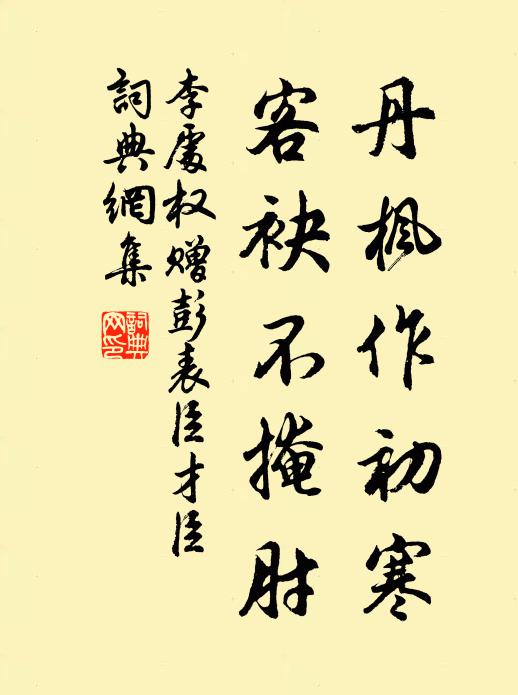 丹楓作初寒
客袂不掩肘
李處权赠彭表臣才臣
詞典網集
詞典網印